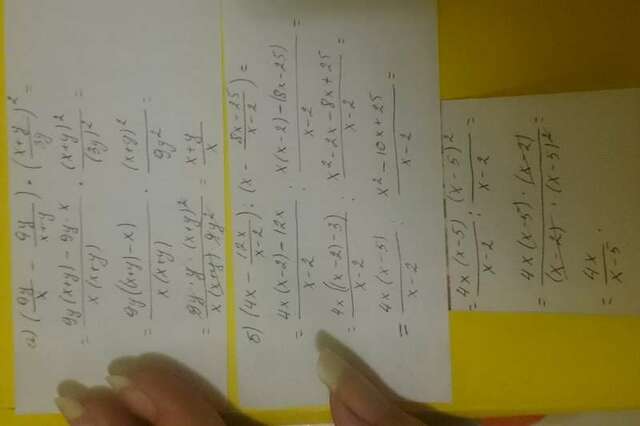 а) (9y/x - 9y/x+y) · (x+y/3y)² =
= 9y(x+y) - 9y·x / x(x+y) · (x+y)² / (3y)² =
= 9y((x+y) - x) / x(x+y) · (x+y)² / 9y² =
= 9y·y·(x+y)² / x(x+y)·9y² = x+y / x
б) (4x - 12x/x-2) : (x - 8x-25/x-2) =
= 4x(x-2) - 12x / x-2 : x(x-2) - (8x-25) / x-2 =
= 4x((x-2)-3) / x-2 : x²-2x-8x+25 / x-2 =
= 4x(x-5) / x-2 : x²-10x+25 / x-2 =
= 4x(x-5) / x-2 : (x-5)² / x-2 =
= 4x(x-5)·(x-2) / (x-2)·(x-5)² =
= 4x / x-5 .